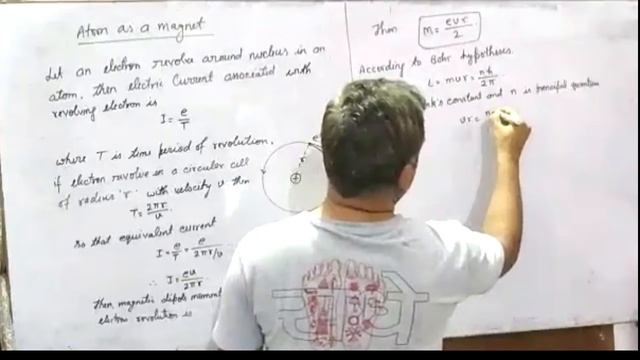 Atom as a magnet
Let an electron revolve around nucleus in an
atom, then electric Current associated with
revolving electron is
I = e/T
where T is time period of revolution,
if electron revolve in a circular cell
of radius 'r' with velocity v then
T = 2πr/v
so that equivalent current
I = e/T = e/2πr/v
∴ I = ev/2πr
Then, magnetic dipole moment
electron revolution is
e
r
+
Then M = evr/2
According to Bohr hypotheses.
L = mvr = nh/2π
constant and n is principal quantum
vr =